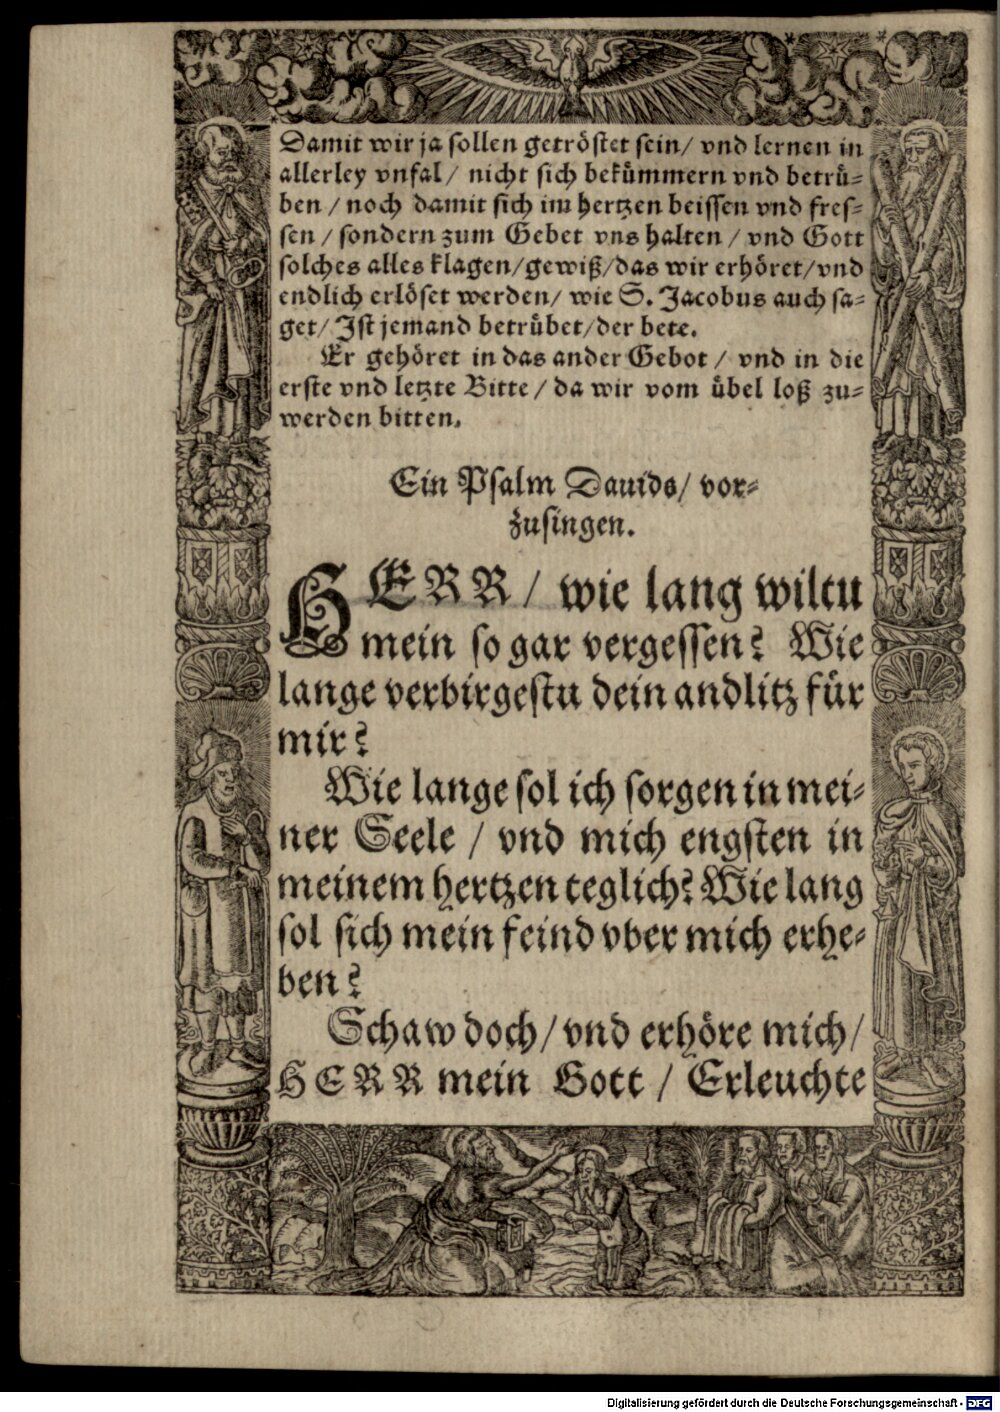 Damit wir ja sollen getröstet sein/ vnd lernen in
allerley vnfal/ nicht sich bekümmern vnd betrü-
ben / noch damit sich im hertzen beissen vnd fres-
sen / sondern zum Gebet vns halten / vnd Gott
solches alles klagen/gewiß/das wir erhöret/vnd
endlich erlöset werden/ wie S. Jacobus auch sa-
get/ Ist jemand betrübet/der bete.
Er gehöret in das ander Gebot / vnd in die
erste vnd letzte Bitte / da wir vom übel loß zu-
werden bitten.
Ein Psalm Dauids/ vor-
zusingen.
HERR / wie lang wiltu
mein so gar vergessen? Wie
lange verbirgestu dein andlitz für
mir?
Wie lange sol ich sorgen in mei-
ner Seele / vnd mich engsten in
meinem hertzen teglich? Wie lang
sol sich mein feind vber mich erhe-
ben?
Schaw doch/ vnd erhöre mich/
HERR mein Gott / Erleuchte
Digitalisierung gefördert durch die Deutsche Forschungsgemeinschaft - DFG